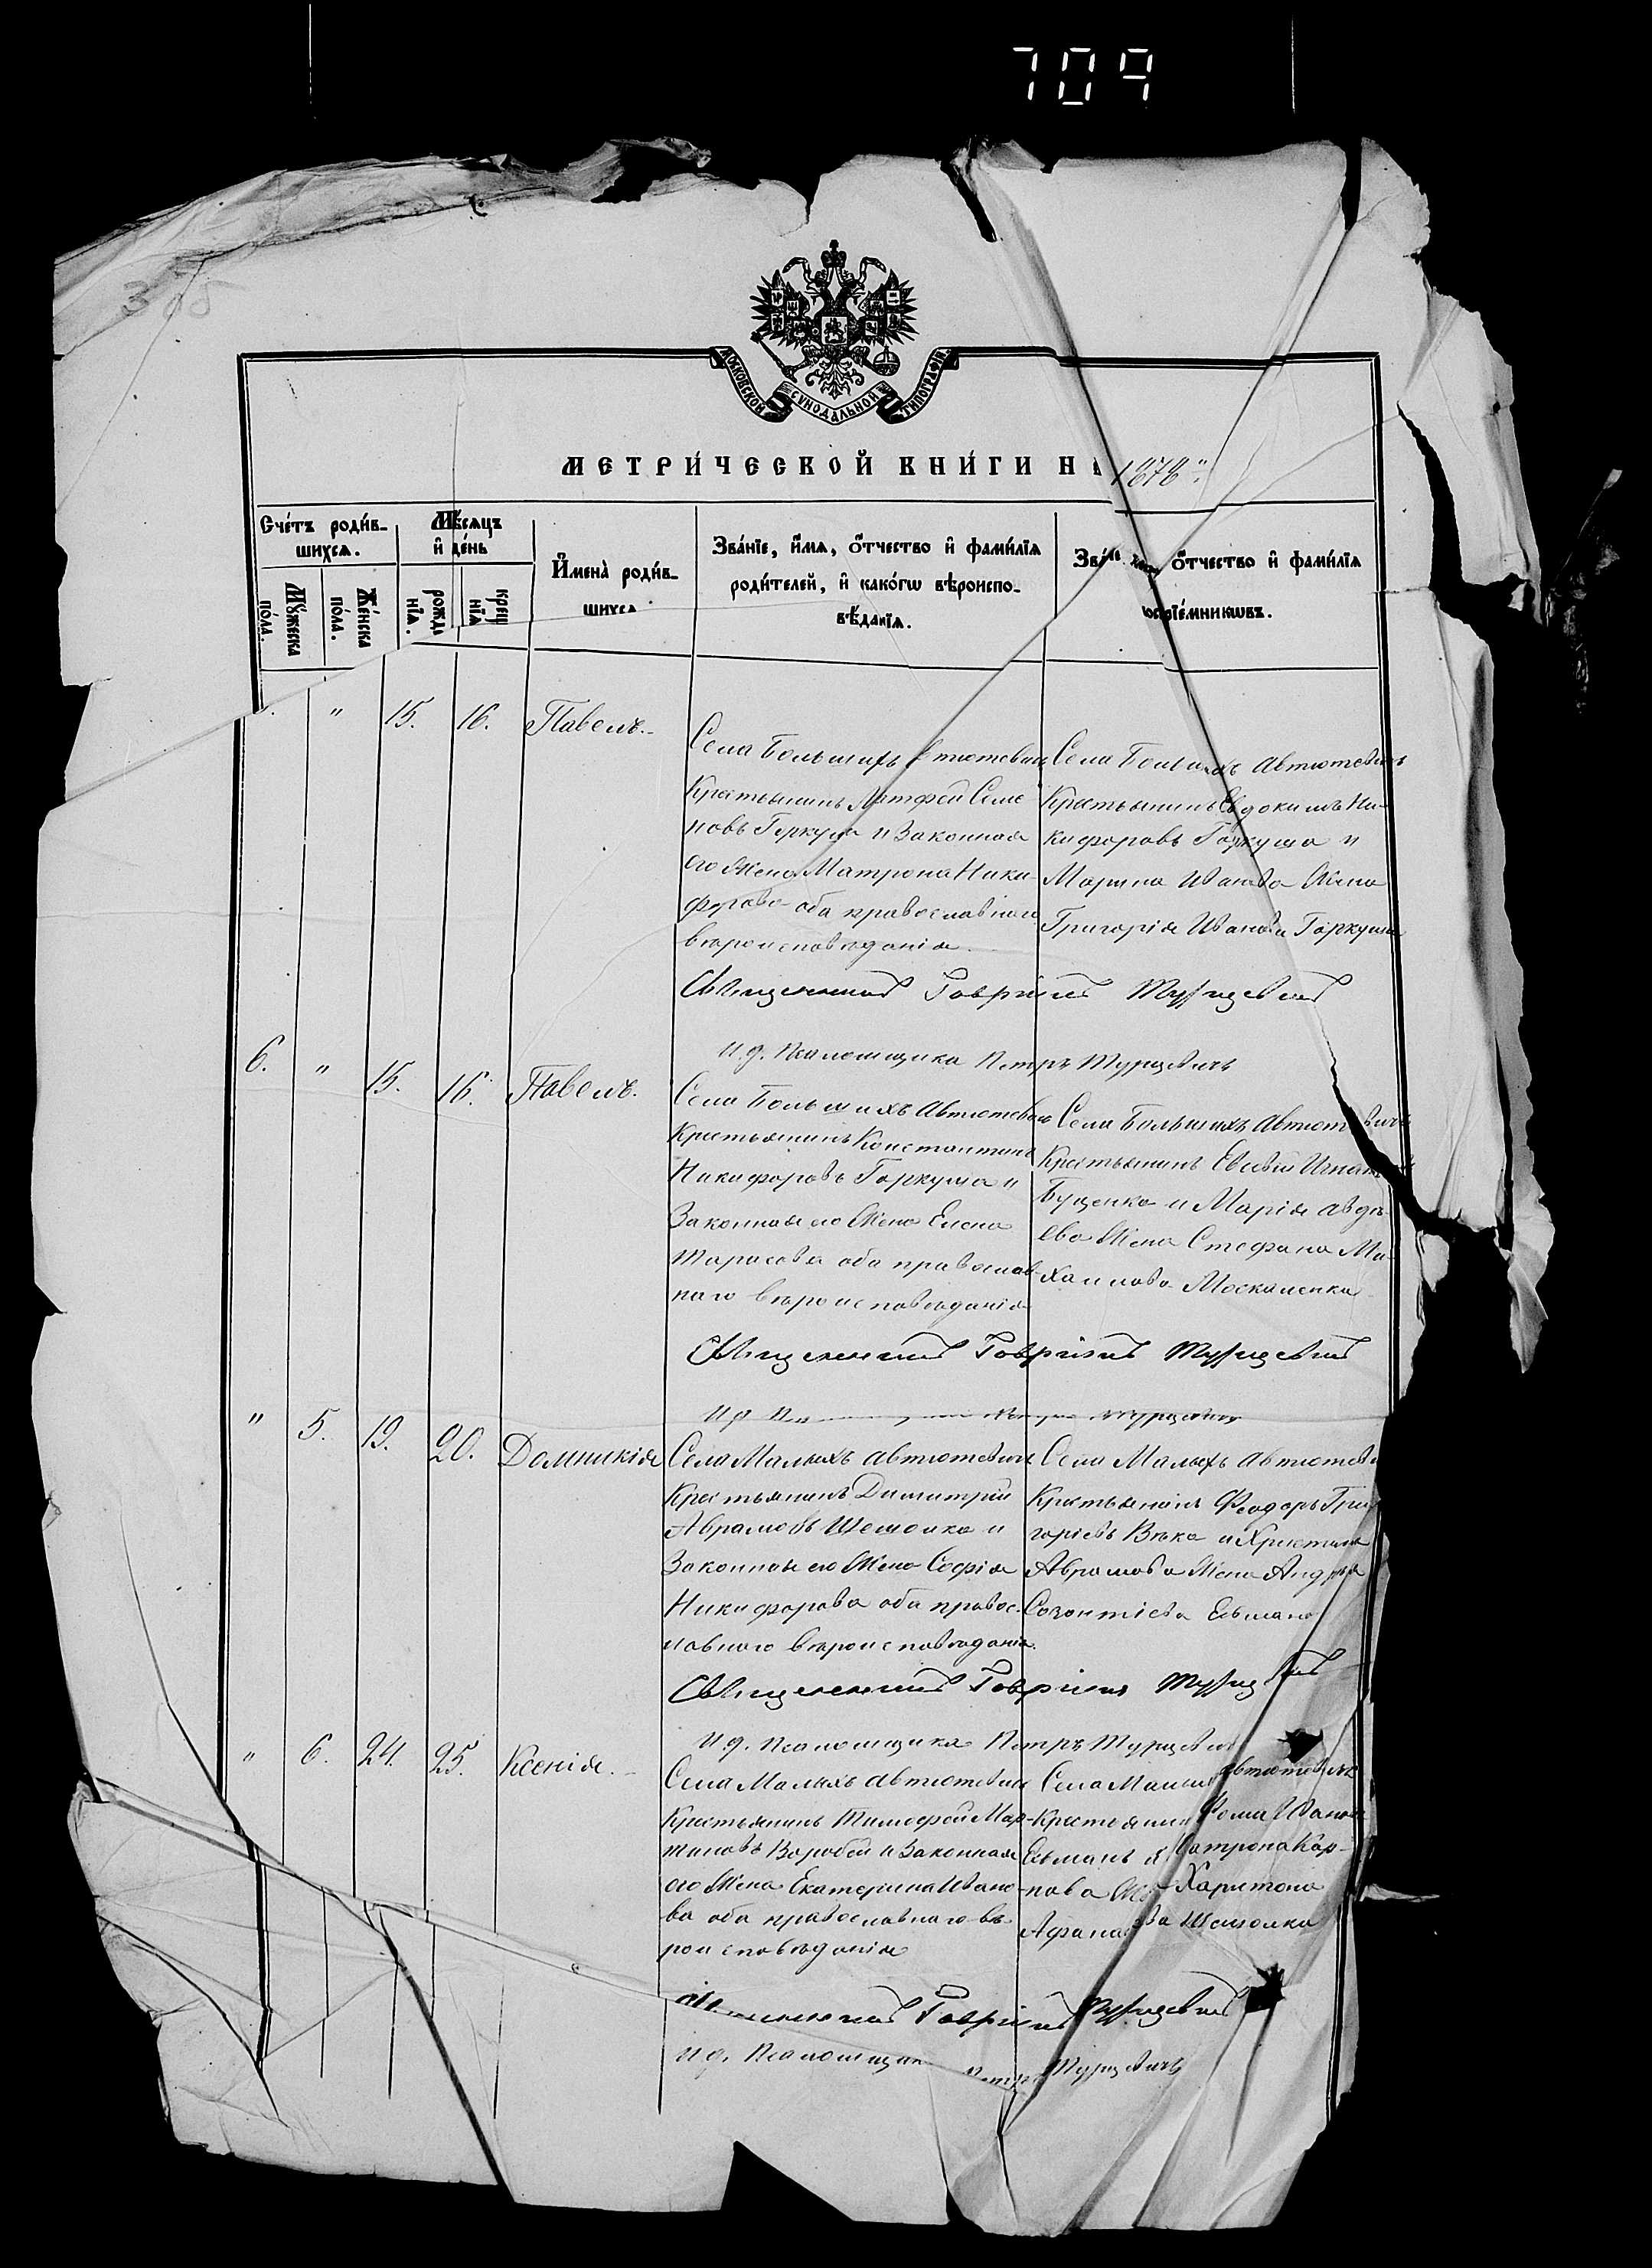 709
305
МОСКОВСКОЙ СУНОДАЛЬНОЙ ТИПОГРАФІИ
МЕТРИ́ЧЕСКОЙ КНИ́ГИ НА 1878"
Сче́тъ роди́в-
шихся.
Мѣ́сяцъ
и де́нь
Мꙋ́жеска
по́ла.
Же́нска
по́ла.
рожде
нїѧ.
креще
нїѧ
И҆мена̀ роди́в-
шихся
Зва́нїе, и҆́мѧ, ѻ҆́тчество и҆ фами́лїѧ
роди́телей, и҆ како́гѡ вѣроиспо-
вѣ́данїѧ.
Зва́нїе ѻ҆́тчество и҆ фами́лїѧ
воспрїе́мникѡвъ.
" 15. 16. Павелъ.
Села Большихъ Автютевичъ
Крестьянинъ Матфей Семе
новъ Горкуша и Законная
его Жена Матрона Ники-
форова оба православнаго
вѣроисповѣданія.
Села Большихъ Автютевичъ
Крестьянинъ Евдокимъ Ни-
кифоровъ Горкуша и
Марина Иванова Жена
Григорія Иванова Горкуши
Священникъ Гавріилъ Турцевичъ
И.д. Псаломщика Петръ Турцевичъ
6. " 15. 16. Павелъ.
Села Большихъ Автютевичъ
Крестьянинъ Константинъ
Никифоровъ Горкуша и
Законная его Жена Елена
Тарасова оба православ-
наго вѣроисповѣданія
Села Большихъ Автютевичъ
Крестьянинъ Евсевій
Буценко и Марія Авдѣ-
ева Жена Стефана Ми-
хаилова Москаленка
Священникъ Гавріилъ Турцевичъ
И.д. Псаломщика Петръ Турцевичъ
" 5. 19. 20. Домникія
Села Малыхъ Автютевичъ
Крестьянинъ Димитрій
Аврамовъ Шемонка и
Законная его Жена Софія
Никифорова оба правос-
лавнаго вѣроисповѣданія.
Села Малыхъ Автютеви
Крестьянинъ Феодоръ Гри
горіевъ Вѣка и Христина
Аврамова Жена Андрея
Созонтіева Ельмана
Священникъ Гавріилъ Турцевичъ
И.д. Псаломщика Петръ Турцевичъ
" 6. 24. 25. Ксенія.
Села Малыхъ Автютевичъ
Крестьянинъ Тимофей Мар-
тиновъ Воробей и Законная
его Жена Екатерина Ивано-
ва оба православнаго вѣ-
роисповѣданія
Села Малыхъ Автютевичъ
Крестьянинъ Фома Иванов
Ельманъ и Матрона Кар-
пова Жена Харитона
Афанасіева Шемонка
Священникъ Гавріилъ Турцевичъ
И.д. Псаломщика Петръ Турцевичъ